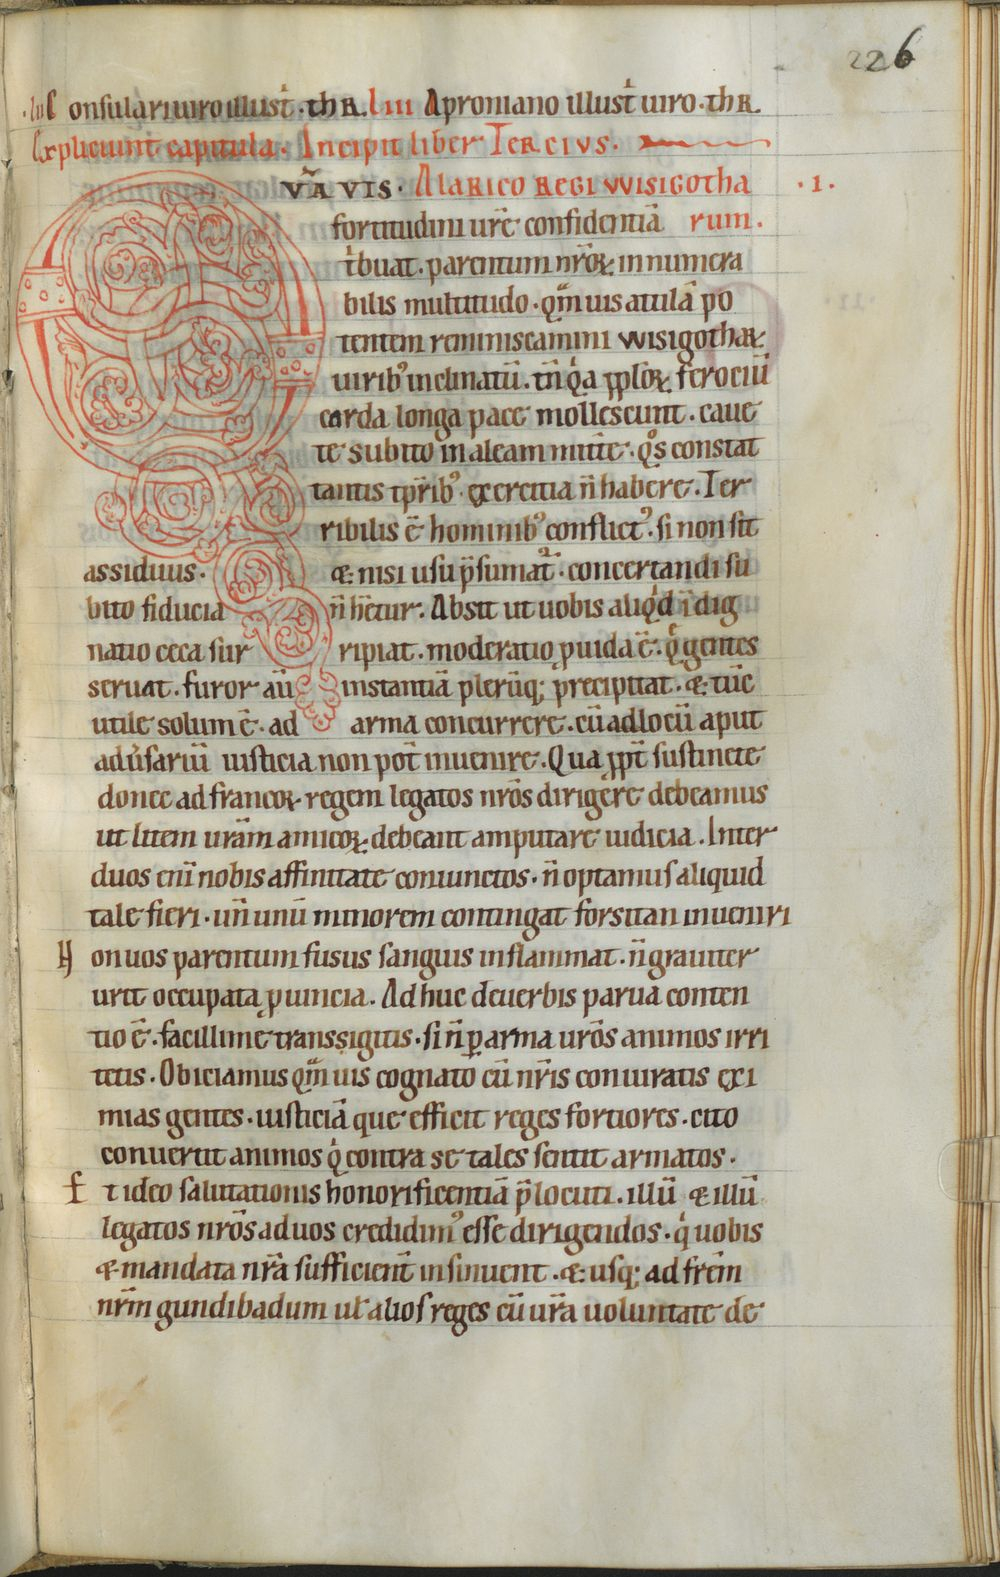 226
.lii. Consulari uiro illust̄. thR. liii Aproniano illust̄ uiro. thR.
Expliciunt capitula. Incipit liber Tercius.
Vā VIS. Alarico regi wisigotha .1.
fortitudini ur̄e confidentiā rum.
tͥbuat. parentum nr̄oꝝ innumera
bilis multitudo. qͣmuis atulā po
tentem reminiscamini wisigothaꝝ
uiribꝰ inclinatū. tn̄ qͥa ꝓploꝝ ferociū
carda longa pace mollescunt. caue
te subito in aleam mitte. qͦs constat
tantis tp̄ribꝰ exercitia n̄ habere. Ter
ribilis ē hominibꝰ conflictꝰ. si non sit
assiduus. & nisi usu p̄sumatᷣ. concertandi su
bito fiducia n̄ hētur. Absit ut uobis aliqͥd īdig
natio ceca sur ripiat. moderatio ꝓuida ē. qͥ gentes
seruat. furor aū instantiā plerūq; precipitat. & tūc
utile solum ē. ad arma concurrere. cū ad locū aput
adūsariū iusticia non pot̄ inuenire. Qua ꝓpt̄ sustinete
donec ad francoꝝ regem legatos nr̄os dirigere debeamus
ut litem urām amicoꝝ debeant amputare iudicia. Inter
duos eni nobis affinitate coniunctos. n̄ optamus aliquid
tale fieri. un̄ unū minorem contingat forsitan inueniri
Non uos parentum fusus sanguis inflammat. n̄ grauiter
urit occupata ꝓuincia. Adhuc de uerbis parua conten
tio ē. facillime transsigitis. si n̄ ꝑ arma ur̄os animos irri
tetis. Obiciamus qͣmuis cognato cū nr̄is coniuratis exi
mias gentes. iusticiā que efficit reges fortiores. cito
conuertit animos qͥ contra se tales sentit armatos.
Et ideo salutationis honorificentiā p̄locuti. illū & illū
legatos nr̄os ad uos credidimꝰ esse dirigendos. qͥ uobis
& mandata nr̄a sufficient̄ insinuent. & usq; ad frēm
nrm̄ gundibadum uł alios reges cū ur̄a uoluntate de